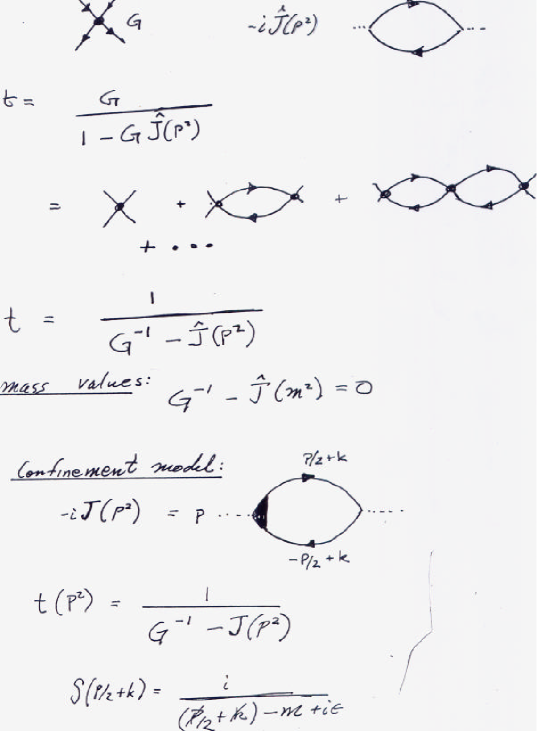 G -iĴ(p²)
t = G / (1 - G Ĵ(p²))
= + +
+ ...
t = 1 / (G⁻¹ - Ĵ(p²))
mass values: G⁻¹ - Ĵ(m²) = 0
Confinement model:
P/2+k
-iJ(p²) = P
-P/2+k
t(p²) = 1 / (G⁻¹ - J(p²))
S(P/2+k) = i / ((P̸/2 + k̸) - m + iε)